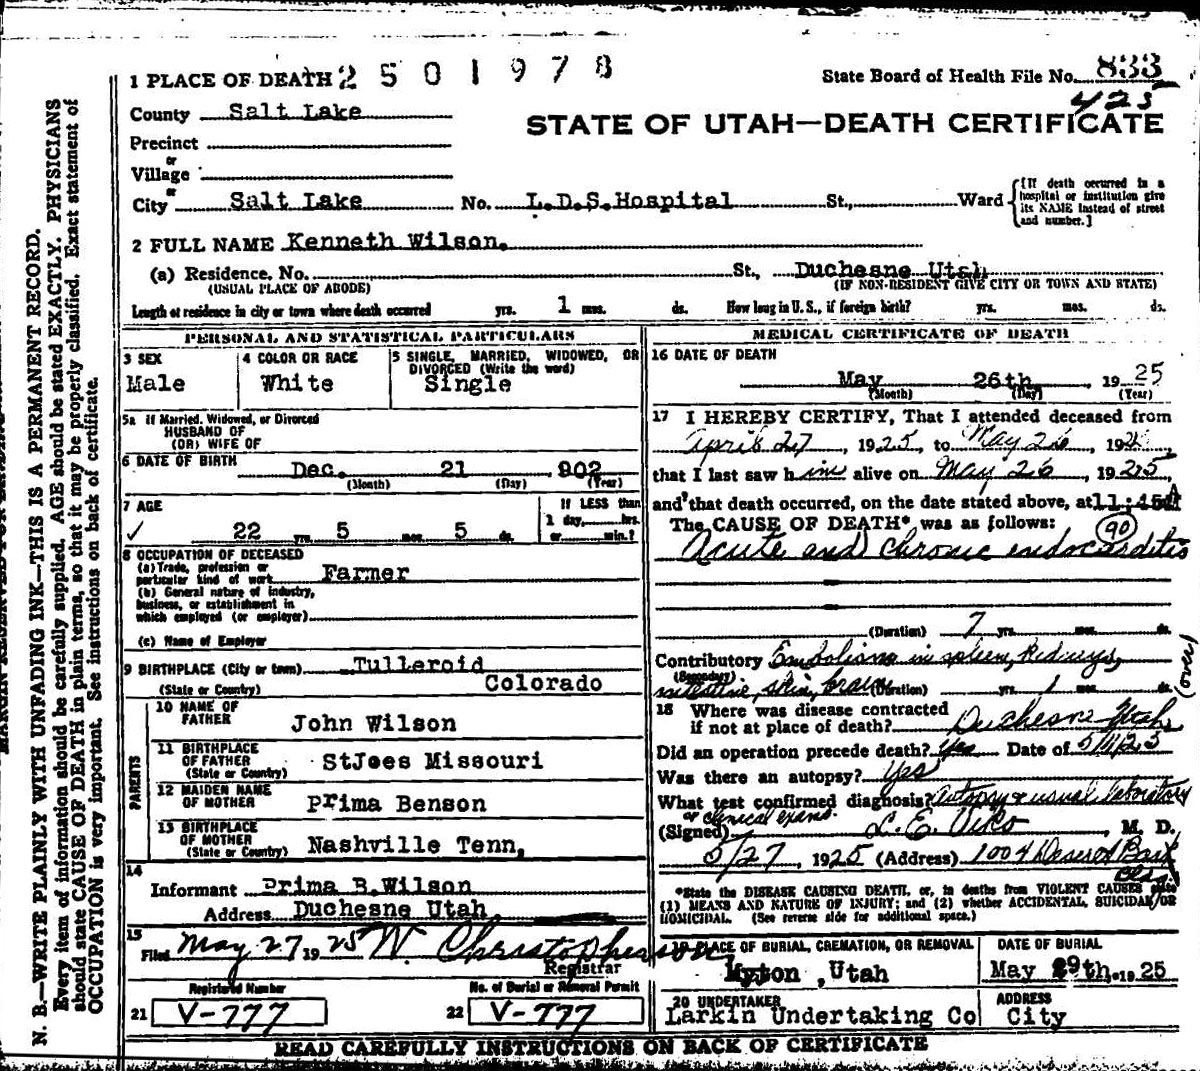 1 PLACE OF DEATH 2 5 0 1 9 7 8
State Board of Health File No. 833
425
County Salt Lake
STATE OF UTAH—DEATH CERTIFICATE
Precinct
or
Village
or
City Salt Lake No. L.D.S.Hospital St., Ward [If death occurred in a hospital or institution give its NAME instead of street and number.]
2 FULL NAME Kenneth Wilson.
(a) Residence. No. St., Duchesne Utah
(USUAL PLACE OF ABODE) (IF NON-RESIDENT GIVE CITY OR TOWN AND STATE)
Length of residence in city or town where death occurred yrs. 1 mos. ds. How long in U. S., if foreign birth? yrs. mos. ds.
PERSONAL AND STATISTICAL PARTICULARS
3 SEX
Male
4 COLOR OR RACE
White
5 SINGLE, MARRIED, WIDOWED, OR
DIVORCED (Write the word)
Single
5a if Married, Widowed, or Divorced
HUSBAND OF
(OR) WIFE OF
6 DATE OF BIRTH Dec. 21 902
(Month) (Day) (Year)
7 AGE
22 yrs. 5 mos. 5 ds.
If LESS than
1 day, hrs.
or min.?
8 OCCUPATION OF DECEASED
(a) Trade, profession or
particular kind of work Farmer
(b) General nature of industry,
business, or establishment in
which employed (or employer)
(c) Name of Employer
9 BIRTHPLACE (City or town) Tulleroid
(State or Country) Colorado
PARENTS
10 NAME OF
FATHER John Wilson
11 BIRTHPLACE
OF FATHER StJoes Missouri
(State or Country)
12 MAIDEN NAME
OF MOTHER Prima Benson
13 BIRTHPLACE
OF MOTHER
(State or Country) Nashville Tenn,
14
Informant Prima B.Wilson
Address Duchesne Utah
15
Filed May 27 1925 W. Christopherson
Registrar
Registered Number
21 V-777
No. of Burial or Removal Permit
22 V-777
MEDICAL CERTIFICATE OF DEATH
16 DATE OF DEATH
May 26th, 1925
(Month) (Day) (Year)
17 I HEREBY CERTIFY, That I attended deceased from
April 27, 1925, to May 26, 192
that I last saw him alive on May 26, 1925,
and that death occurred, on the date stated above, at 11:45 A
The CAUSE OF DEATH* was as follows: 90
Acute and chronic endocarditis
(Duration) 7 yrs. mos. ds.
Contributory Embolisms in spleen, Kidneys,
(Secondary)
intestine, skin, brain (Duration) yrs. 1 mos. ds.
(over)
18 Where was disease contracted
if not at place of death? Duchesne Utah
Did an operation precede death? Yes Date of 5/11/25
Was there an autopsy? Yes
What test confirmed diagnosis? Autopsy & usual laboratory
or clinical exams.
(Signed) L. E. Viko, M. D.
5/27, 1925 (Address) 1004 Deseret Bank
Bldg
*State the DISEASE CAUSING DEATH, or, in deaths from VIOLENT CAUSES state
(1) MEANS AND NATURE OF INJURY; and (2) whether ACCIDENTAL, SUICIDAL, OR
HOMICIDAL. (See reverse side for additional space.)
19 PLACE OF BURIAL, CREMATION, OR REMOVAL
Myton ,Utah
DATE OF BURIAL
May 29th. 1925
20 UNDERTAKER
Larkin Undertaking Co
ADDRESS
City
READ CAREFULLY INSTRUCTIONS ON BACK OF CERTIFICATE
N. B.—WRITE PLAINLY WITH UNFADING INK—THIS IS A PERMANENT RECORD.
Every item of information should be carefully supplied. AGE should be stated EXACTLY. PHYSICIANS
should state CAUSE OF DEATH in plain terms, so that it may be properly classified. Exact statement of
OCCUPATION is very important. See instructions on back of certificate.